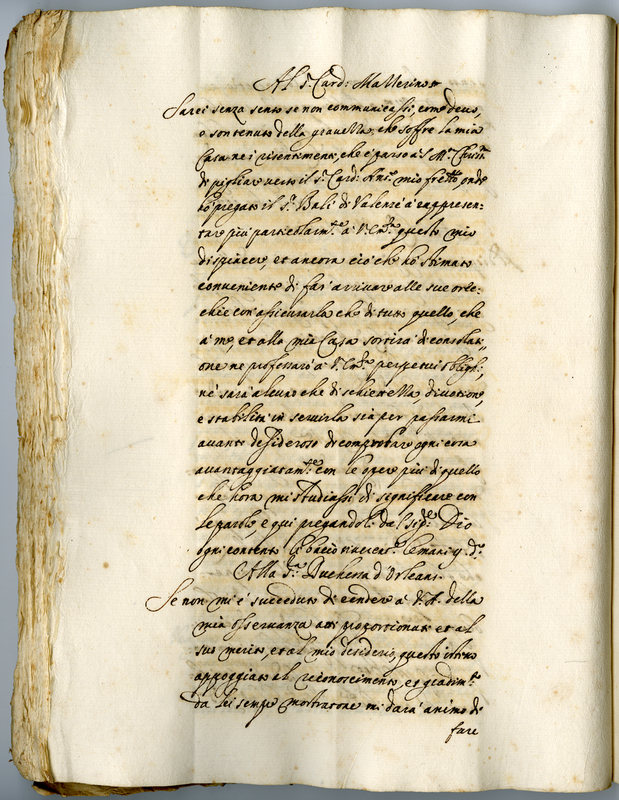 Al S.r Card: Mazzerino
Sarei senza senso se non communicassi, come devo,
o son tenuto della gravezza, che soffre la mia
Casa ne i risentimenti, che è parso à S. M.tà Christ.ma
di pigliare verso il S.r Card: Ant.o mio frat.llo, onde
hò piegato il S.r Balì di Valenzé à rappresen-
tare più particolarm.te à V. Em.za questo mio
dispiacere, et ancora ciò che hò stimato
conveniente di far arrivare alle sue orec-
chie con assicurarla che di tutto quello, che
à me, et alla mia Casa sortirà di consolati-
one ne professarò à V. Em.za perpetui oblighi,
né sarà alcuno che di schiettezza, divotione,
e stabilità in servirla sia per passarmi
avanti desideroso di comprobare ogni cosa
avantaggiatam.te con le opere più di quello
che hora mi studiassi di significare con
le parole, e qui pregandole dal Sig.re Dio
ogni contento li bacio riverent.e le mani q.
Alla S.ra Duchessa d'Orleans.
Se non mi è succeduto di rendere à V. A. della
mia osservanza atti proportionati et al
suo merito, et al mio desiderio, questo istesso
appoggiato al riconoscimento, et gradim.to
da lei sempre mostratone mi darà animo di
fare